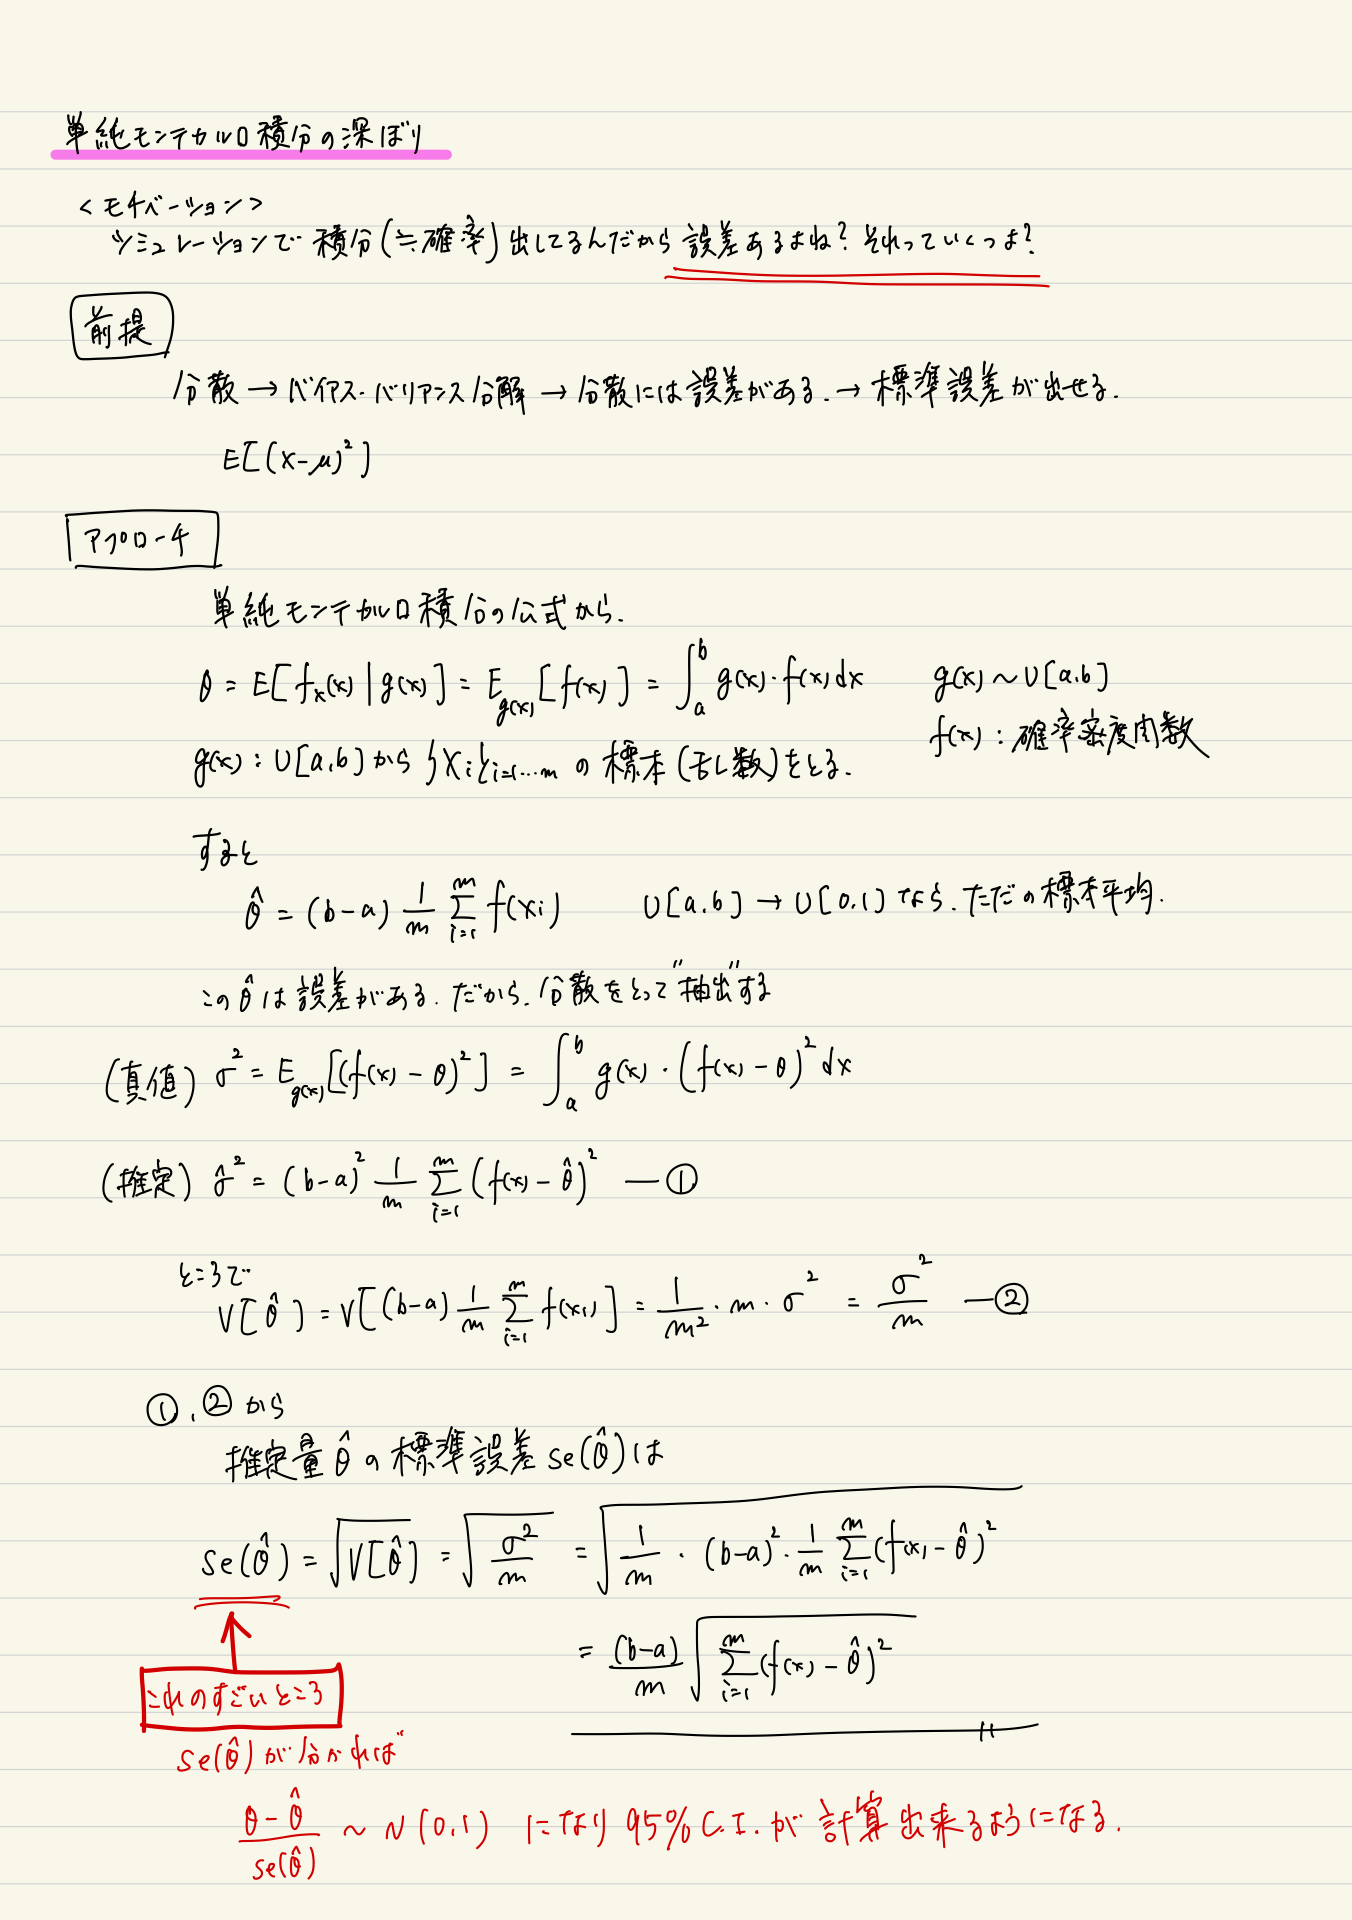 単純モンテカルロ積分の深ぼり
<モチベーション>
シミュレーションで積分(≒確率)出してるんだから誤差あるよね?それっていくつよ?
前提
分散→バイアス・バリアンス分解→分散には誤差がある.→標準誤差が出せる.
E[(x-μ)²]
アプローチ
単純モンテカルロ積分の公式から.
θ = E[fₓ(x)|g(x)] = E_{g(x)}[f(x)] = ∫_a^b g(x)・f(x)dx  g(x)~U[a.b]
f(x):確率密度関数
g(x):U[a,b]から{Xi}i=1…mの標本(乱数)をとる.
すると
θ̂ = (b-a) 1/m Σ_{i=1}^m f(xi)  U[a.b]→U[0.1]なら.ただの標本平均.
このθ̂は誤差がある.だから.分散をとって"抽出"する
(真値) σ² = E_{g(x)}[(f(x)-θ)²] = ∫_a^b g(x)・(f(x)-θ)²dx
(推定) σ̂² = (b-a)² 1/m Σ_{i=1}^m (f(x)-θ̂)² ―①
ところで
V[θ̂] = V[(b-a) 1/m Σ_{i=1}^m f(xi)] = 1/m²・m・σ² = σ²/m ―②
①.②から
推定量θ̂の標準誤差se(θ̂)は
se(θ̂) = √V[θ̂] = √(σ²/m) = √(1/m・(b-a)²・1/m Σ_{i=1}^m (f(x)-θ̂)²)
= (b-a)/m √(Σ_{i=1}^m (f(x)-θ̂)²)
これのすごいところ
se(θ̂)が分かれば
(θ-θ̂)/se(θ̂) ~ N(0.1) になり95%C.I.が計算出来るようになる.